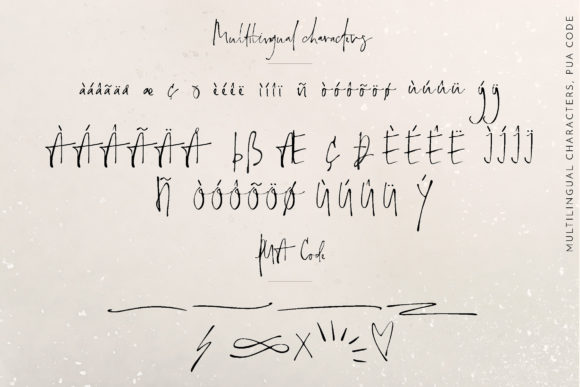 Multilingual characters
àáâãäå æ ç ð èéêë ìíîï ñ òóôõöø ùúûü ýÿ
ÀÁÂÃÄÅ þß Æ Ç Ð ÈÉÊË ÌÍÎÏ
Ñ ÒÓÔÕÖØ ÙÚÛÜ Ý
PUA Code
MULTILINGUAL CHARACTERS, PUA CODE